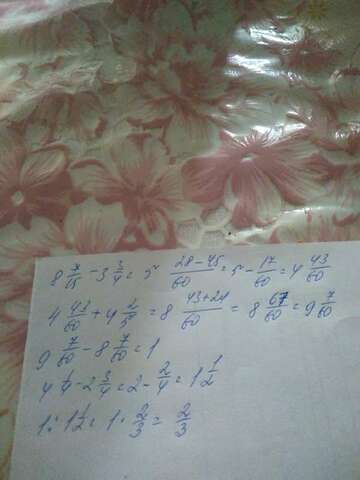 8 7/15 - 3 3/4 = 5 28-45/60 = 5 - 17/60 = 4 43/60
4 43/60 + 4 2/5 = 8 43+24/60 = 8 67/60 = 9 7/60
9 7/60 - 8 7/60 = 1
4 1/4 - 2 3/4 = 2 - 2/4 = 1 1/2
1 : 1 1/2 = 1 · 2/3 = 2/3